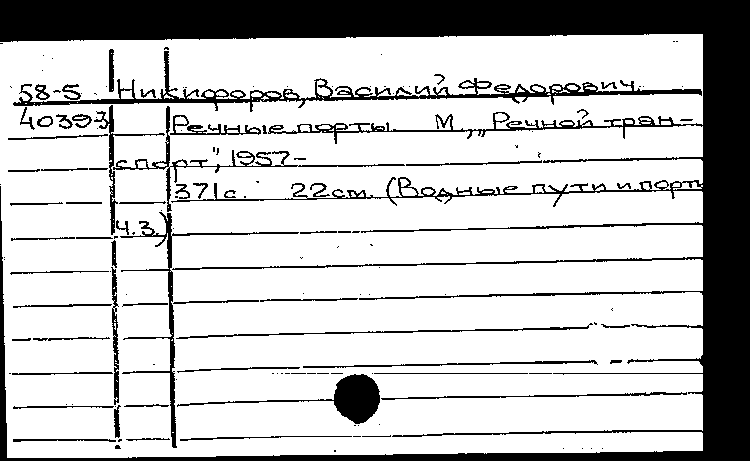 58-5 Никифоров, Василий Федорович.
40393 Речные порты. М., „Речной тран-
спорт", 1957-
371с. 22см. (Водные пути и порты
Ч.3.)